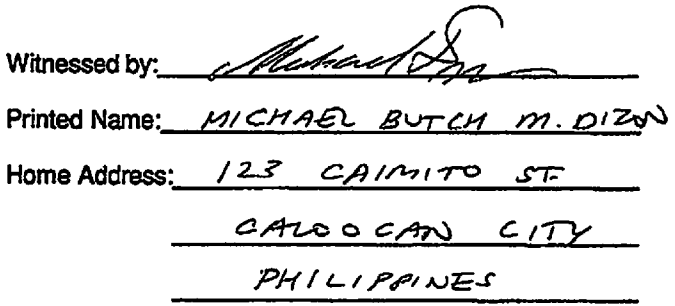 Witnessed by: Michael Dizon
Printed Name: MICHAEL BUTCH M. DIZON
Home Address: 123 CAIMITO ST.
CALOOCAN CITY
PHILIPPINES